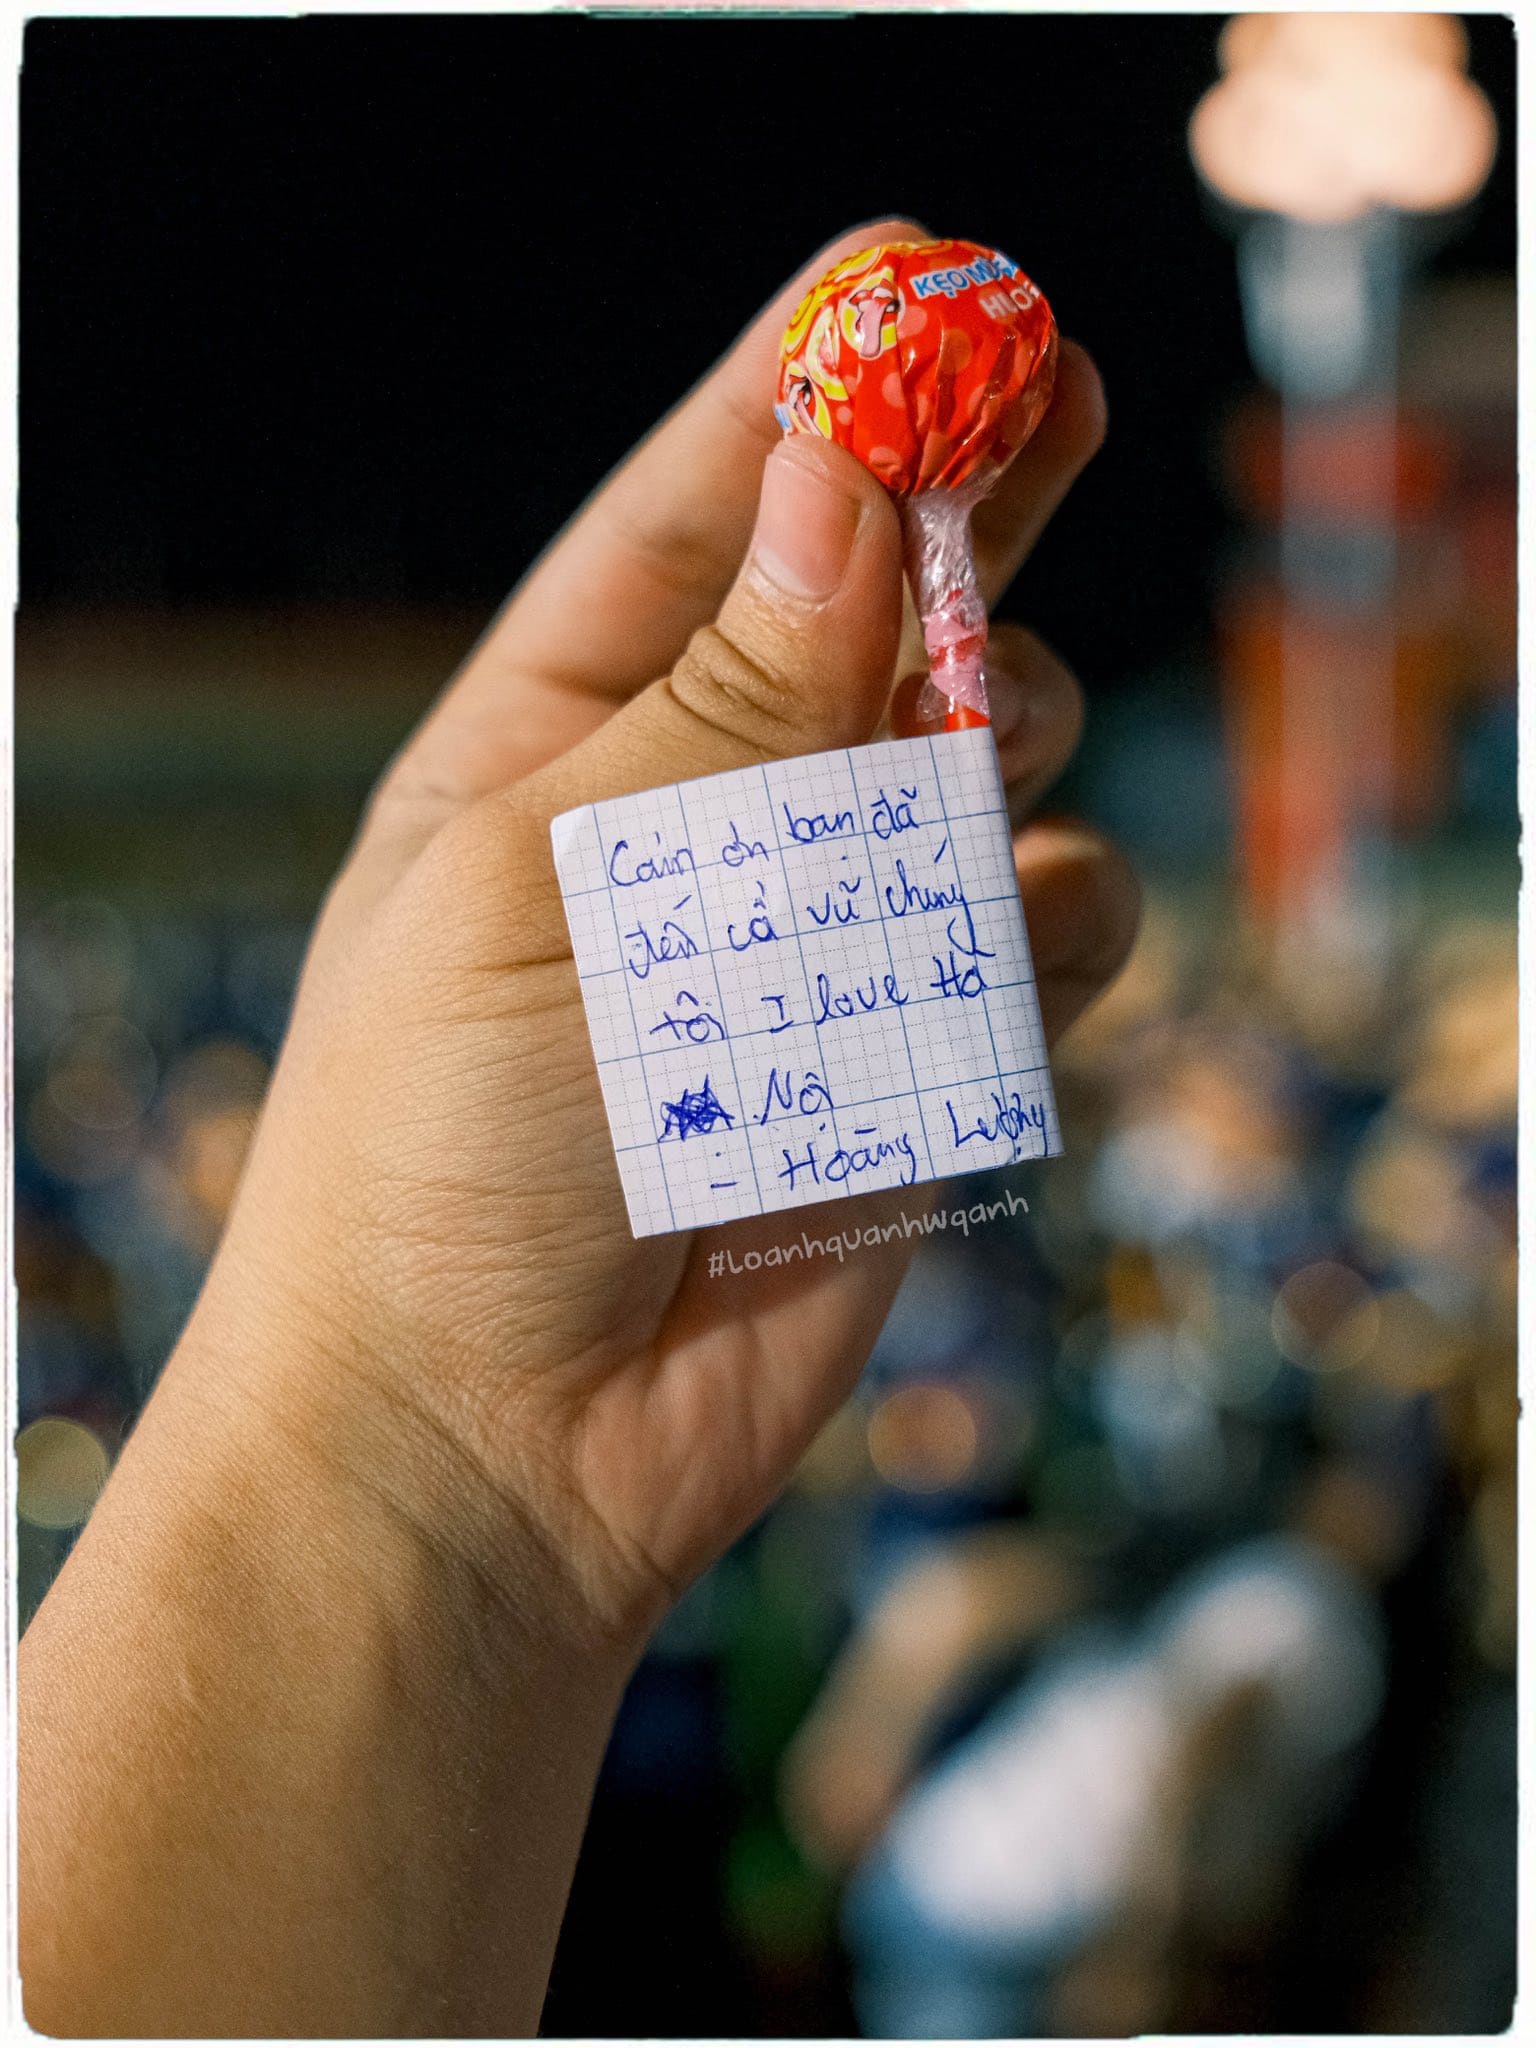 KẸO MÚ
HLO
Cảm ơn bạn đã
đến cổ vũ chúng
tôi I love Hà
Nội
- Hoàng Lượng
#Loanhquanhwqanh